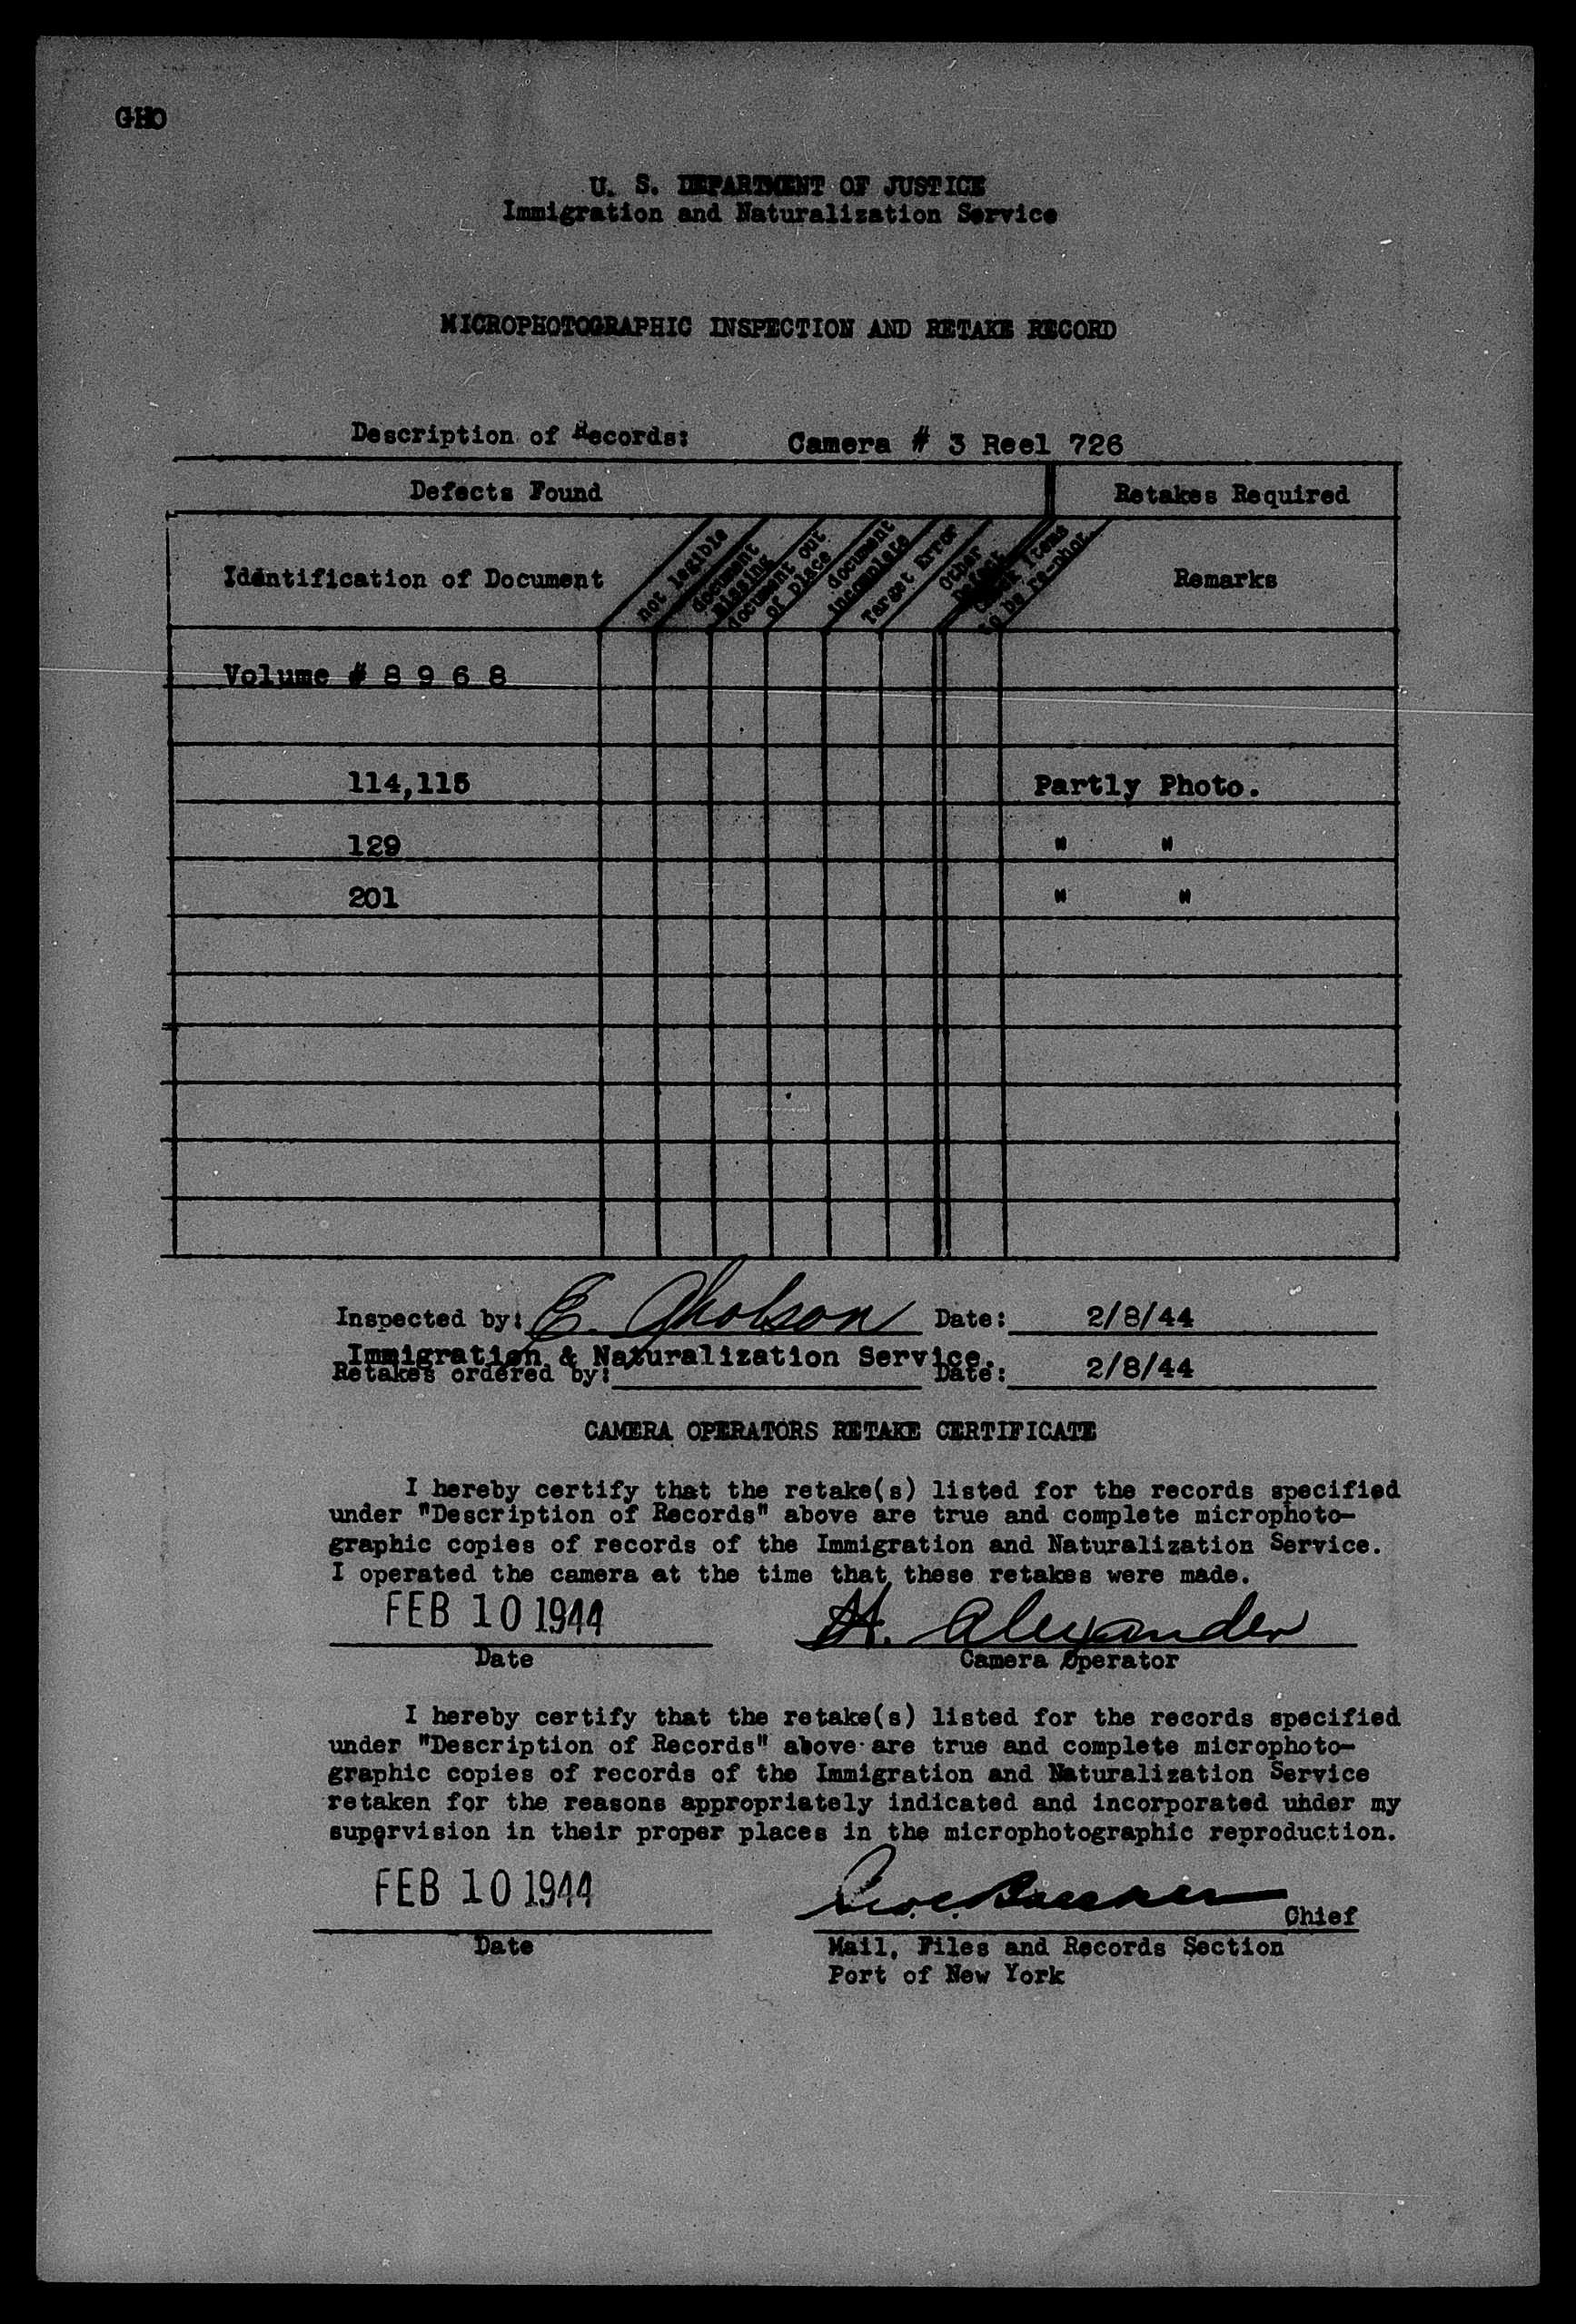 GHO
U. S. DEPARTMENT OF JUSTICE
Immigration and Naturalization Service
MICROPHOTOGRAPHIC INSPECTION AND RETAKE RECORD
Description of Records: Camera # 3 Reel 726
Defects Found Retakes Required
Identification of Document
not legible
document
missing
document out
of place
document
incomplete
Target Error
Other
Defect
Items
to be re-phot.
Remarks
Volume # 8 9 6 8
114,115 Partly Photo.
129 " "
201 " "
Inspected by: E. Gholson Date: 2/8/44
Immigration & Naturalization Service.
Retakes ordered by: Date: 2/8/44
CAMERA OPERATORS RETAKE CERTIFICATE
I hereby certify that the retake(s) listed for the records specified
under "Description of Records" above are true and complete microphoto-
graphic copies of records of the Immigration and Naturalization Service.
I operated the camera at the time that these retakes were made.
FEB 10 1944 H. Alexander
Date Camera Operator
I hereby certify that the retake(s) listed for the records specified
under "Description of Records" above are true and complete microphoto-
graphic copies of records of the Immigration and Naturalization Service
retaken for the reasons appropriately indicated and incorporated under my
supervision in their proper places in the microphotographic reproduction.
FEB 10 1944
Chief
Date Mail, Files and Records Section
Port of New York